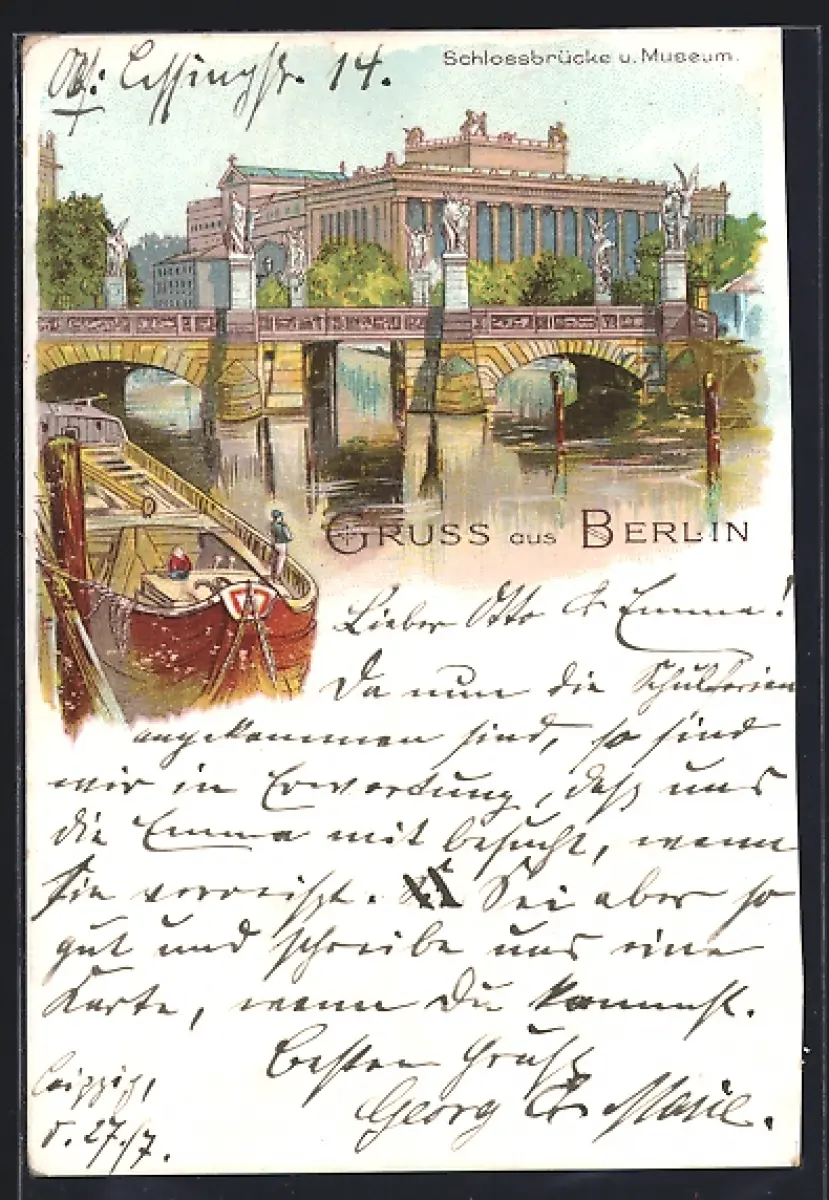 Lessingstr. 14.
Schlossbrücke u. Museum.
GRUSS aus BERLIN
Lieber Otto & Emma!
Da nun die Schulferien
angekommen sind, so sind
wir in Erwartung, daß uns
die Emma mit besucht, wenn
sie verreist. Sei aber so
gut und schreibe uns eine
Karte, wenn Du kommst.
Besten Gruß
Georg &
Leipzig,
d. 27./7.